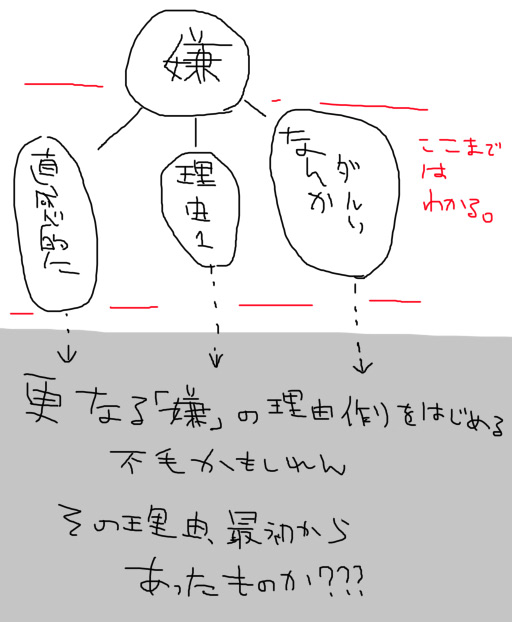 嫌
直感的に
理由1
なんか
ダルい
ここまで
は
わかる。
更なる「嫌」の理由作りをはじめる
不毛かもしれん
その理由、最初から
あったものか???